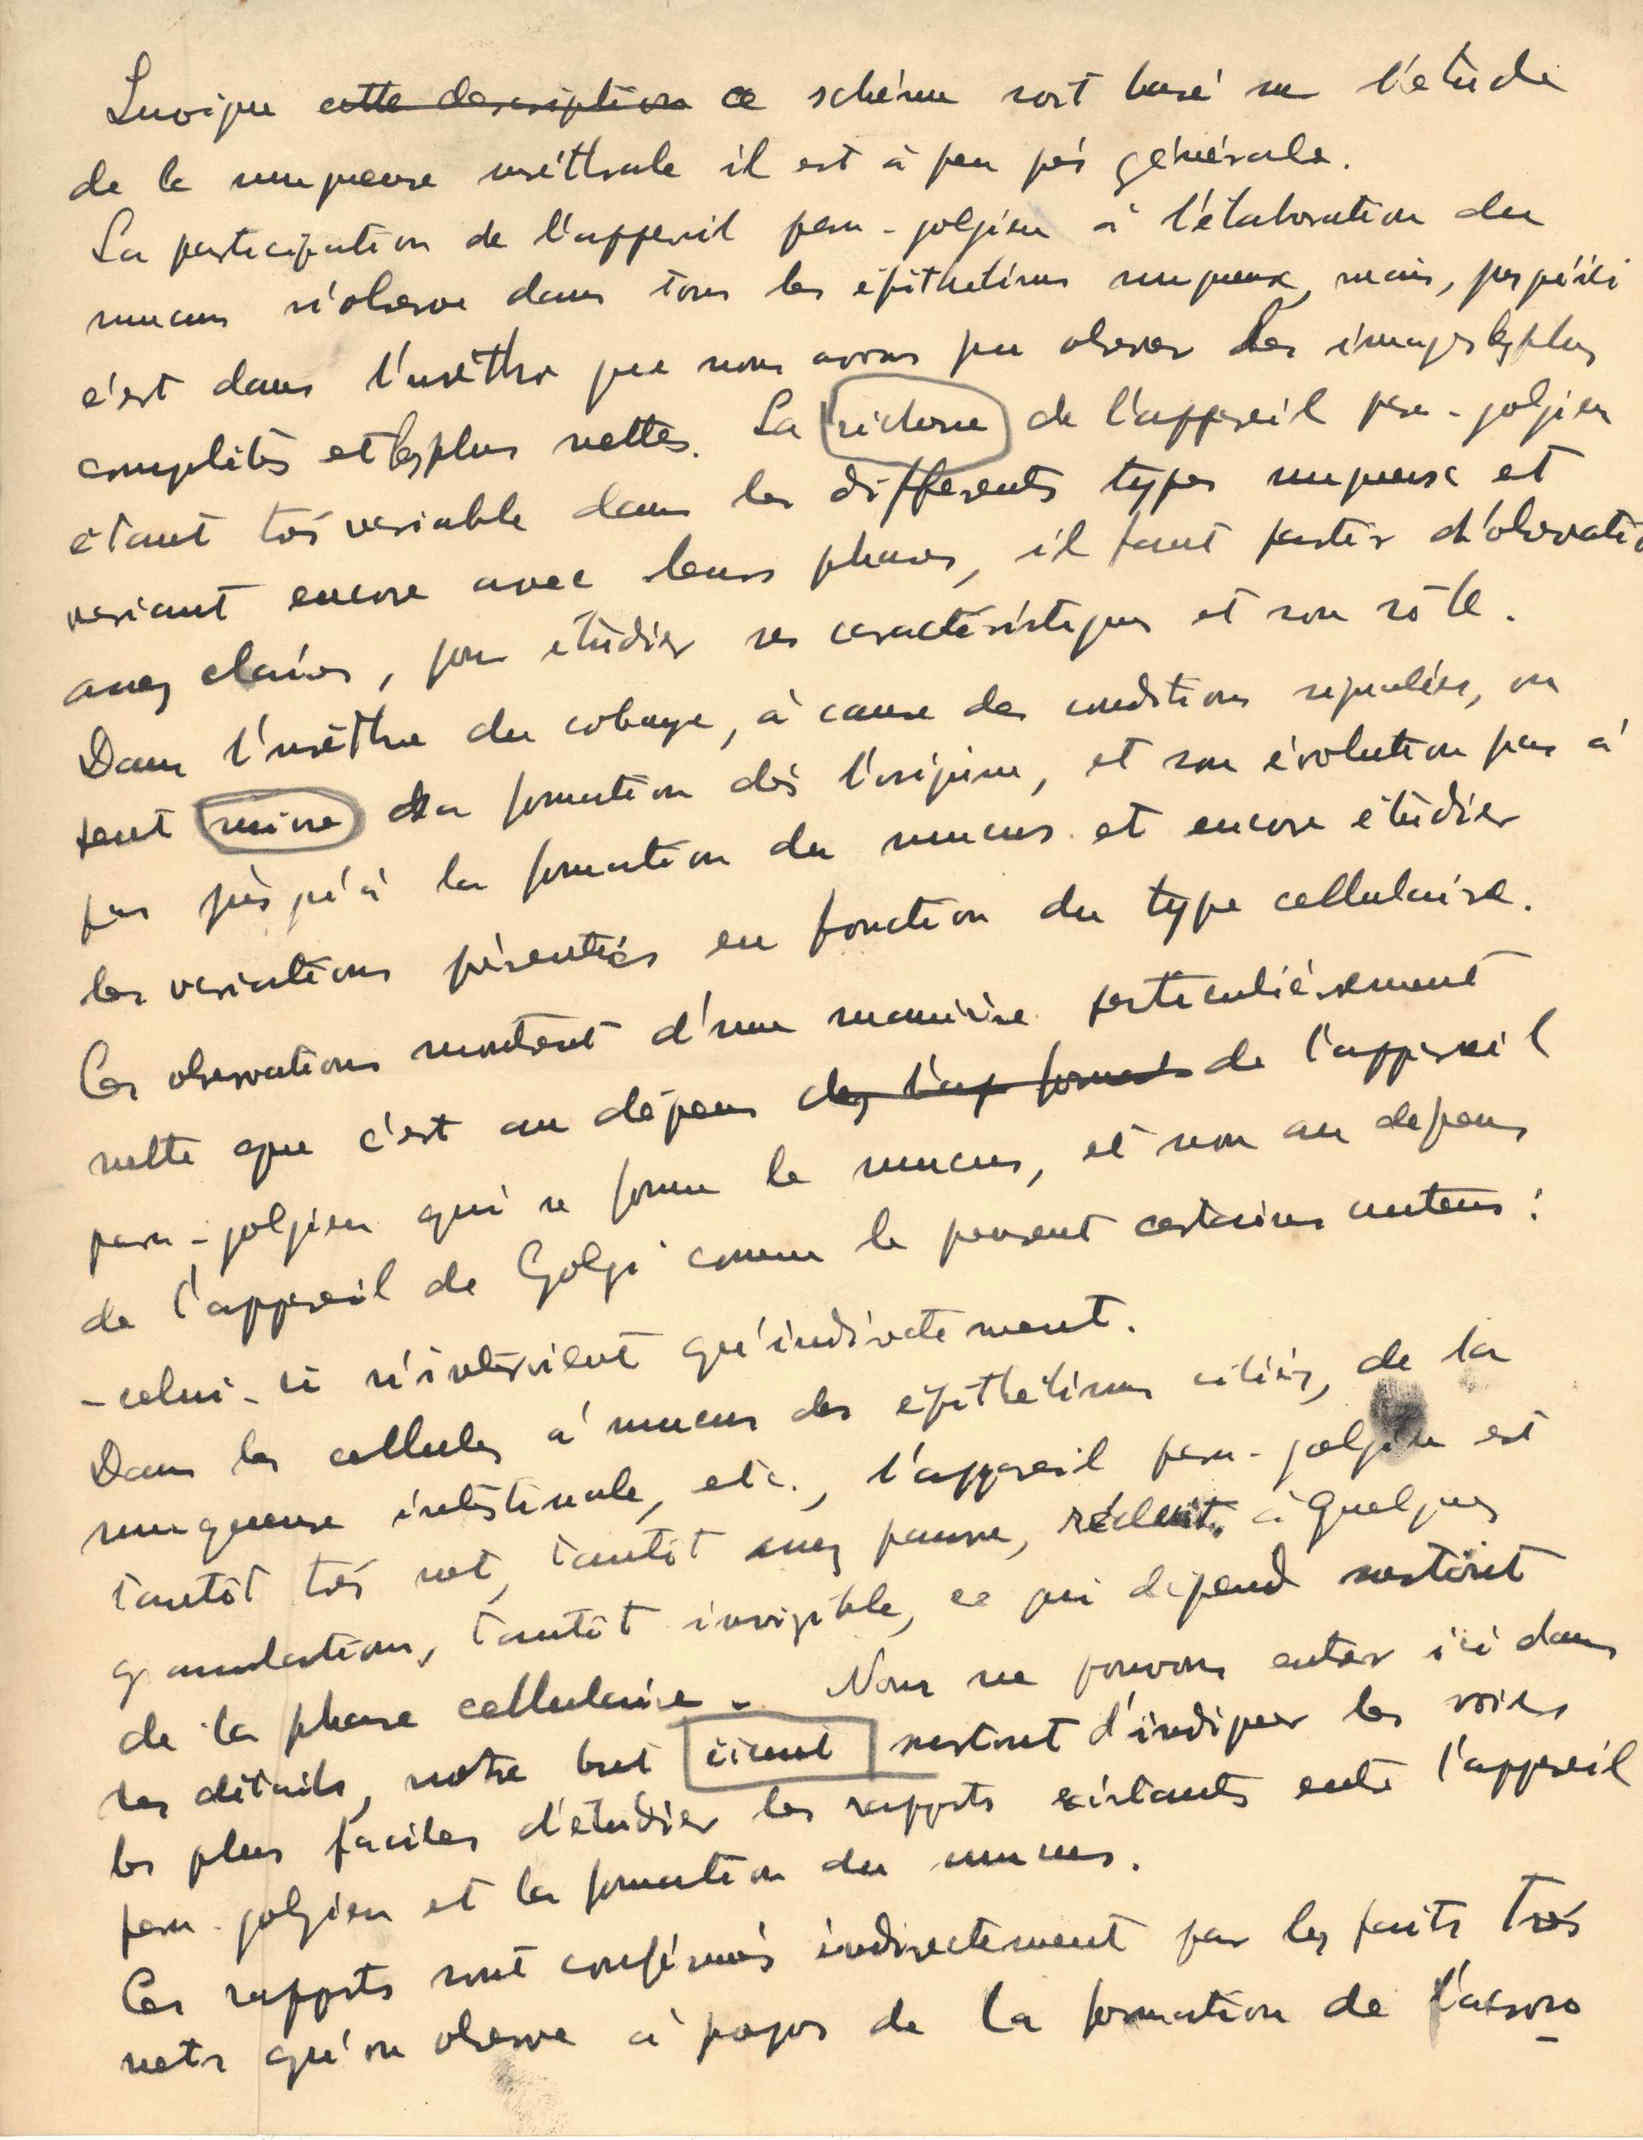 Quoique cette description ce schéma soit basé sur l'étude
de la muqueuse uréthrale il est à peu près générale.
La participation de l'appareil para-golgien à l'élaboration du
mucus s'observe dans tous les épithéliums muqueux, mais, jusqu'ici
c'est dans l'uréthre que nous avons pu observer les images les plus
complètes et les plus nettes. La richesse de l'appareil para-golgien
étant très variable dans les différents types muqueux et
variant encore avec leurs phases, il faut partir d'observatio
assez claires, pour étudier ses caractéristiques et son rôle.
Dans l'uréthre du cobaye, à cause des conditions signalées, on
peut suivre sa formation dès l'origine, et son évolution pas à
pas jusqu'à la formation du mucus et encore étudier
les variations présentées en fonction du type cellulaire.
Ces observations montrent d'une manière particulièrement
nette que c'est au dépens de l'appareil
para-golgien qui se forme le mucus, et non au depens
de l'appareil de Golgi comme le pensent certains auteurs:
-celui-ci n'intervient qu'indirectement.
Dans les cellules à mucus des épithéliums ciliés, de la
muqueuse intestinale, etc., l'appareil para-golgien est
tantôt très net, tantôt assez pauvre, réduit à quelques
granulations, tantôt invisible, ce qui dépend surtout
de la phase cellulaire. Nous ne pouvons entrer ici dans
les détails, notre but étant surtout d'indiquer les voies
les plus faciles d'étudier les rapports existants entre l'appareil
para-golgien et la formation du mucus.
Ces rapports sont confirmés indirectement par les faits très
nets qu'on observe à propos de la formation de l'acroso